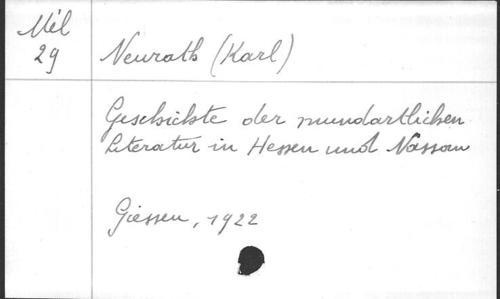 Mél
29
Neurath (Karl)
Geschichte der mundartlichen
Literatur in Hessen und Nassau
Giessen, 1922